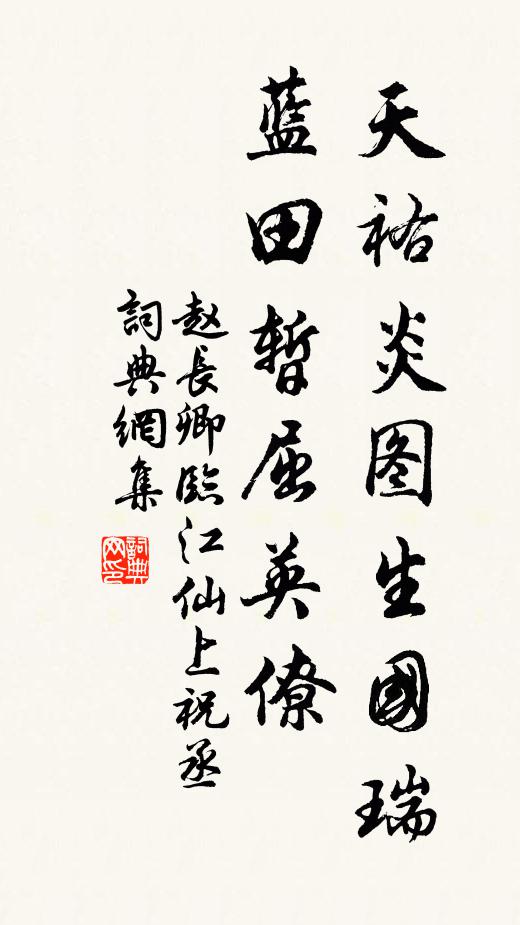 天祐炎图生國瑞
藍田暫屈英僚
赵長卿臨江仙上祝丞
詞典網集
詞典网印